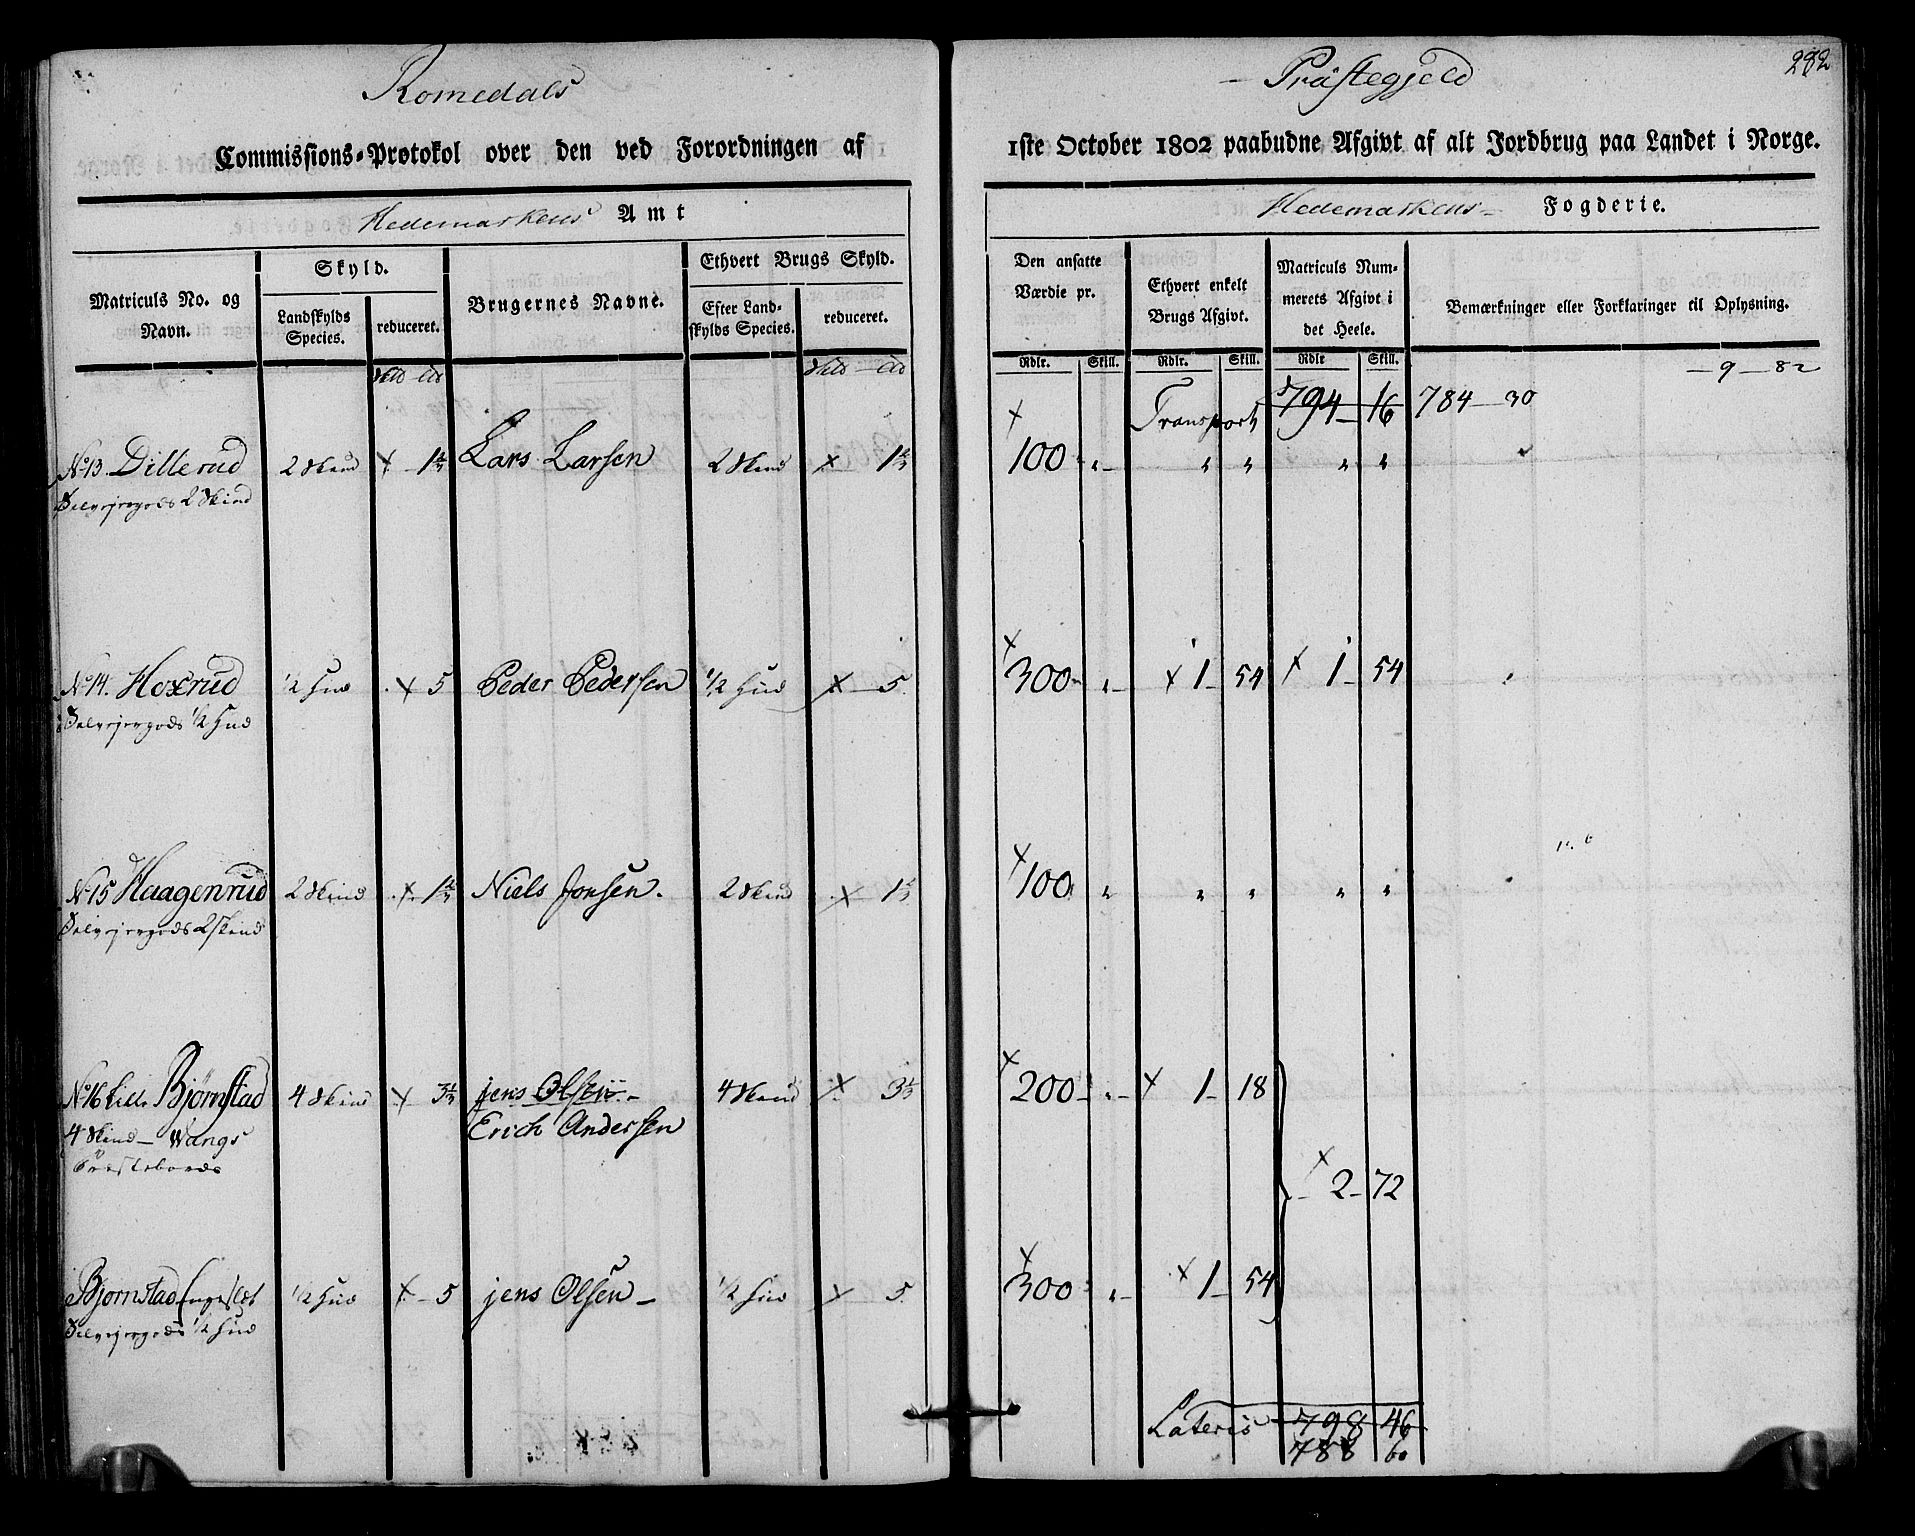 Romedals
Commissions-Protokol over den ved Forordningen af
Hedemarkens Amt
Matriculs No. og Navn.
Skyld.
Landskylds Species.
reduceret.
Brugernes Navne.
Ethvert Brugs Skyld.
Efter Landskylds Species.
reduceret.
No 13. Dillerud 2 Skind X 1 2/3 Lars Larsen 2 Skind X 1 2/3
Selvejergods 2 Skind
No 14. Hoxrud 1/2 Hud X 5 Peder Pedersen 1/2 Hud X 5
Selvejergods 1/2 Hud
No 15 Haagenrud 2 Skind X 1 2/3 Niels Jonsen. 2 Skind X 1 2/3
Selvejergods 2 Skind
No 16 Lille Bjørnstad 4 Skind X 3 1/3 jens Olsen 4 Skind X 3 1/3
4 Skind - Wangs Erich Andersen
Præstebords
Bjørnstad Engeslet 1/2 Hud X 5 jens Olsen 1/2 Hud X 5
Selvejergods 1/2 Hud
Præstegjeld
282
1ste October 1802 paabudne Afgivt af alt Jordbrug paa Landet i Norge.
Hedemarkens Fogderie.
Den ansatte Værdie pr.
Ethvert enkelt Brugs Afgivt.
Matriculs Nummerets Afgivt i det Heele.
Bemærkninger eller Forklaringer til Oplysning.
Rdlr. Skill. Rdlr. Skill. Rdlr Skill.
- 9 - 82
Transport 794 - 16 784 - 30
X 100 „ „ „ „ „
X 300 „ X 1 - 54 X 1 - 54
X 100 „ „ „ „ „
X 200 „ X 1 - 18
X 2 - 72
X 300 „ X 1 - 54
Lateris 798 46
788 60